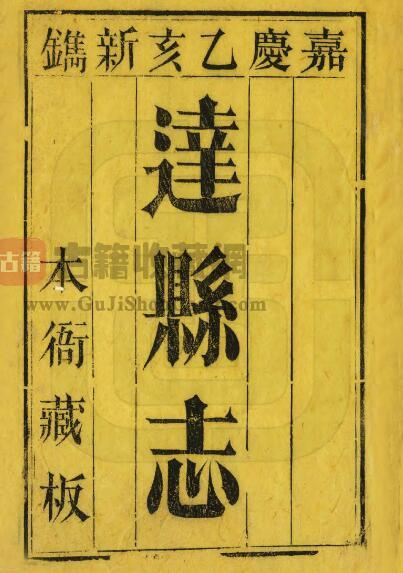 嘉慶乙亥新鐫
達縣志
本衙藏板
古籍
古籍收藏網